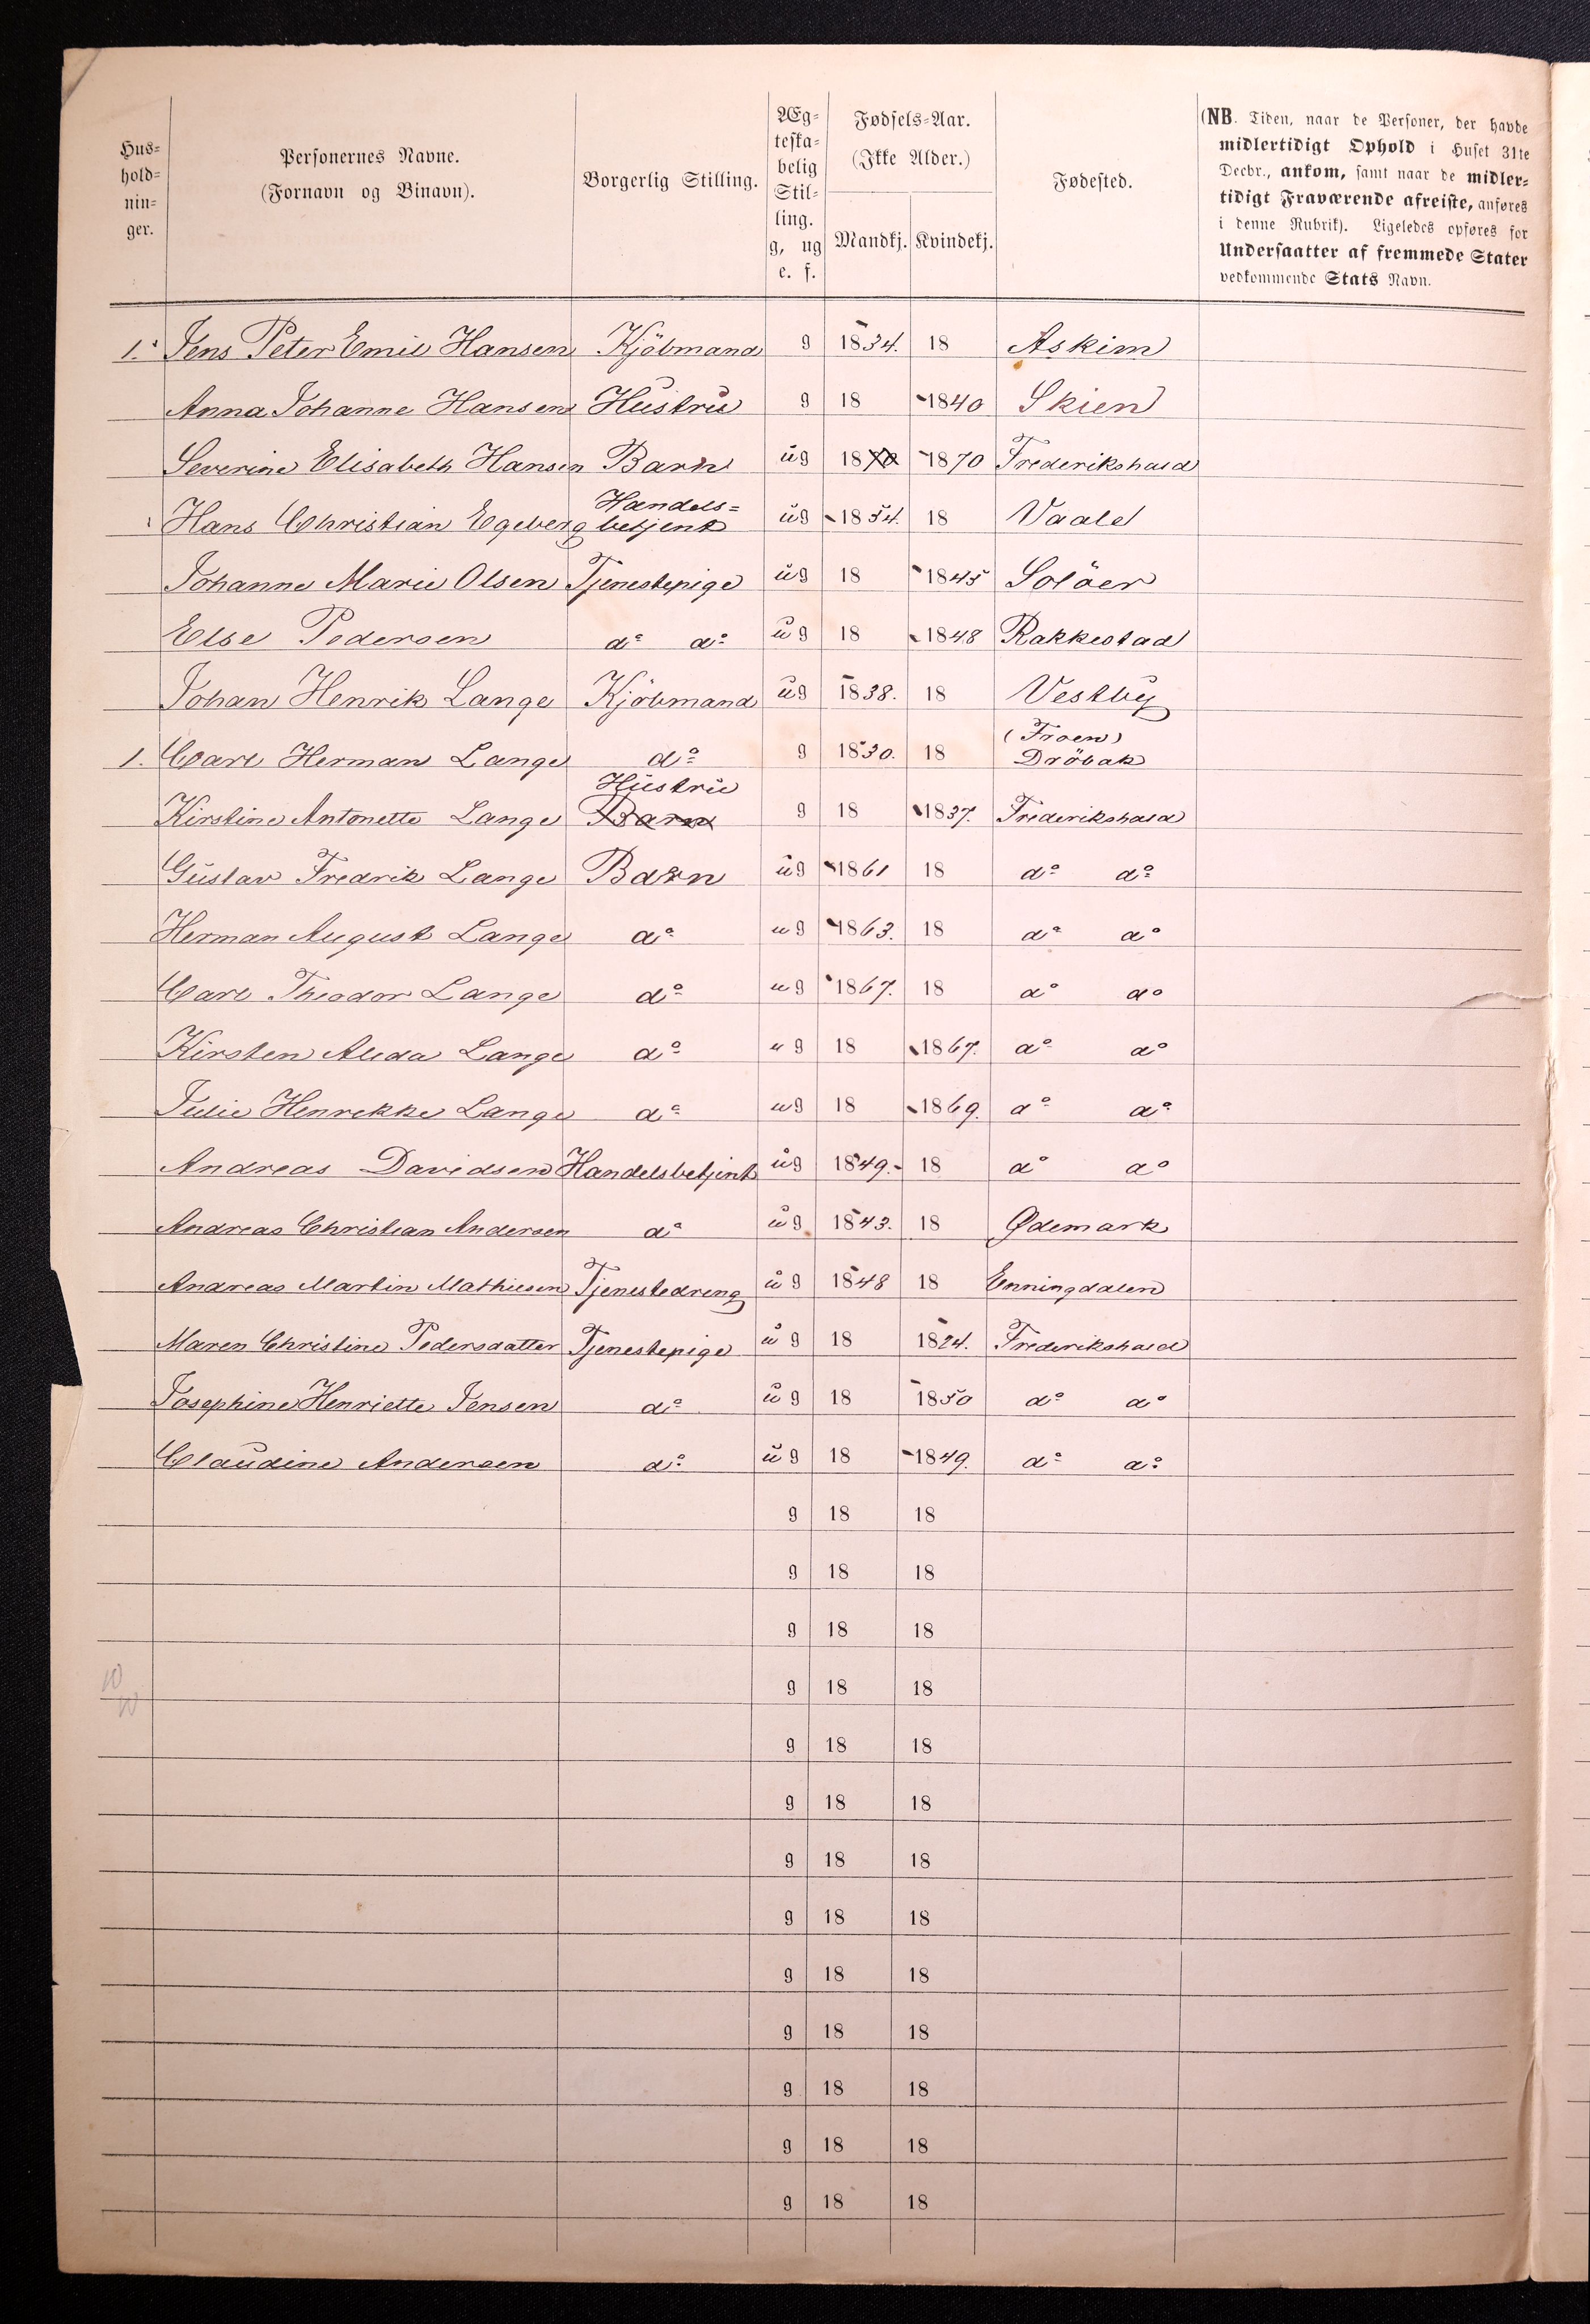 Hus-
hold-
nin-
ger.
Personernes Navne.
(Fornavn og Binavn).
Borgerlig Stilling.
Æg-
teska-
belig
Stil-
ling.
g, ug
e. f.
Fødsels-Aar.
(Ikke Alder.)
Mandkj. Kvindekj.
Fødested.
(NB. Tiden, naar de Personer, der havde
midlertidigt Ophold i Huset 31te
Decbr., ankom, samt naar de midler-
tidigt Fraværende afreiste, anføres
i denne Rubrik). Ligeledes opføres for
Undersaatter af fremmede Stater
vedkommende Stats Navn.
1. Jens Peter Emil Hansen Kjöbmand g 1834. 18 Askim
Anna Johanne Hansen Hustru g 18 1840 Skien
Severine Elisabeth Hansen Barn ug 1870 1870 Frederikshald
Hans Christian Egeberg Handels= ug 1854. 18 Vaale
betjent
Johanne Marie Olsen Tjenestepige ug 18 1845 Solöer
Else Pedersen do do ug 18 1848 Rakkestad
Johan Henrik Lange Kjöbmand ug 1838. 18 Vestby
(Froen)
1. Carl Herman Lange do g 1830. 18 Dröbak
Hustru
Kirstine Antonette Lange Barn g 18 1837. Frederikshald
Gustav Fredrik Lange Barn ug 1861 18 do do
Herman August Lange do ug 1863. 18 do do
Carl Theodor Lange do ug 1867. 18 do do
Kirsten Alida Lange do ug 18 1867. do do
Julie Henrekke Lange do ug 18 1869. do do
Andreas Davidsen Handelsbetjent ug 1849.- 18 do do
Andreas Christian Andersen do ug 1843. 18 Ødemark
Andreas Martin Mathiesen Tjenestedreng ug 1848 18 Enningdalen
Maren Christine Pedersdatter Tjenestepige ug 18 1824. Frederikshald
Josephine Henriette Jensen do ug 18 1850 do do
Claudine Andersen do ug 18 1849. do do
g 18 18
g 18 18
g 18 18
g 18 18
g 18 18
g 18 18
g 18 18
g 18 18
g 18 18
g 18 18
g 18 18
g 18 18
g 18 18